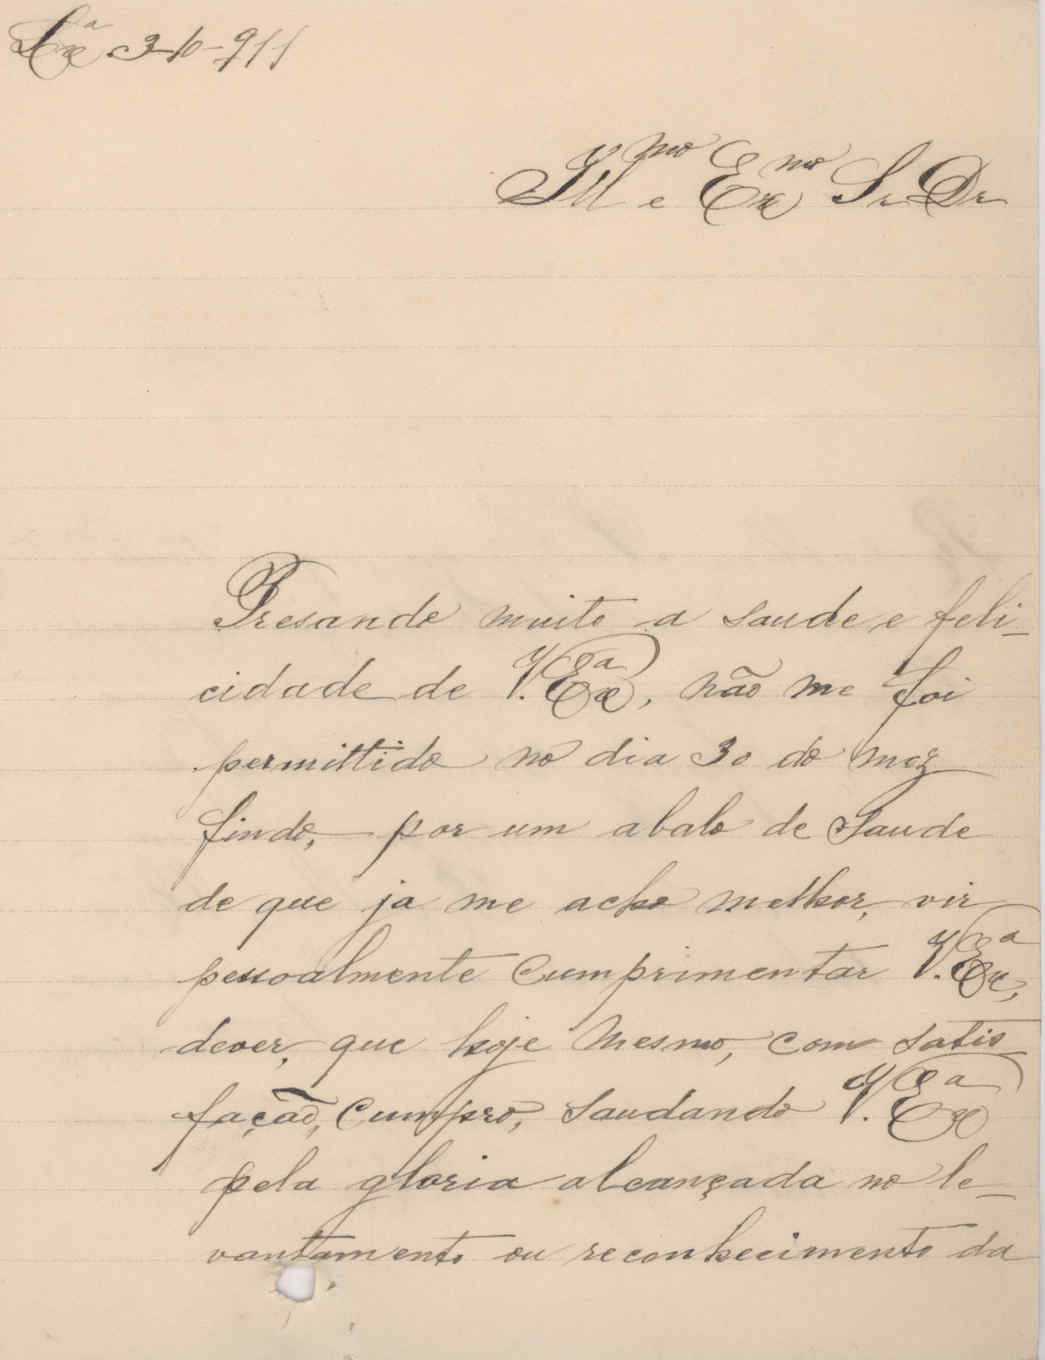 Lxª 3-10-911
Ill^mo e Ex^mo Sr Dr
Presando muito a saude e feli-
cidade de V. Exª, não me foi
permittido no dia 30 do mez
findo, por um abalo de saude
de que ja me acho melhor, vir
pessoalmente cumprimentar V. Exª,
dever, que hoje mesmo, com satis
fação, cumpro, saudando V. Exª
pela gloria alcançada no le-
vantamento ou reconhecimento da